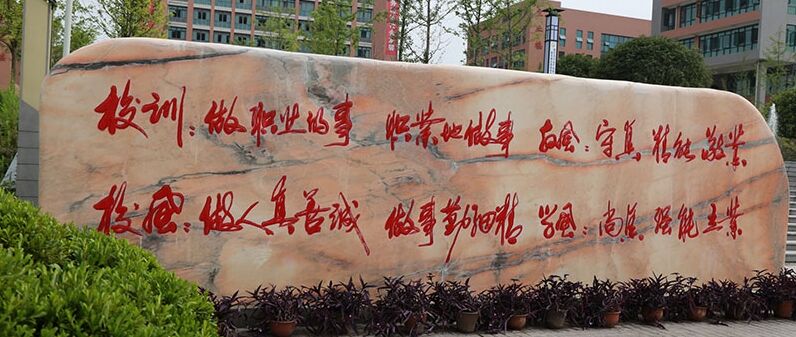 校训：做职业的事 职業地做事 教风：守真 精能 敬業
校风：做人真善诚 做事勤细精 学风：尚真 强能 立業